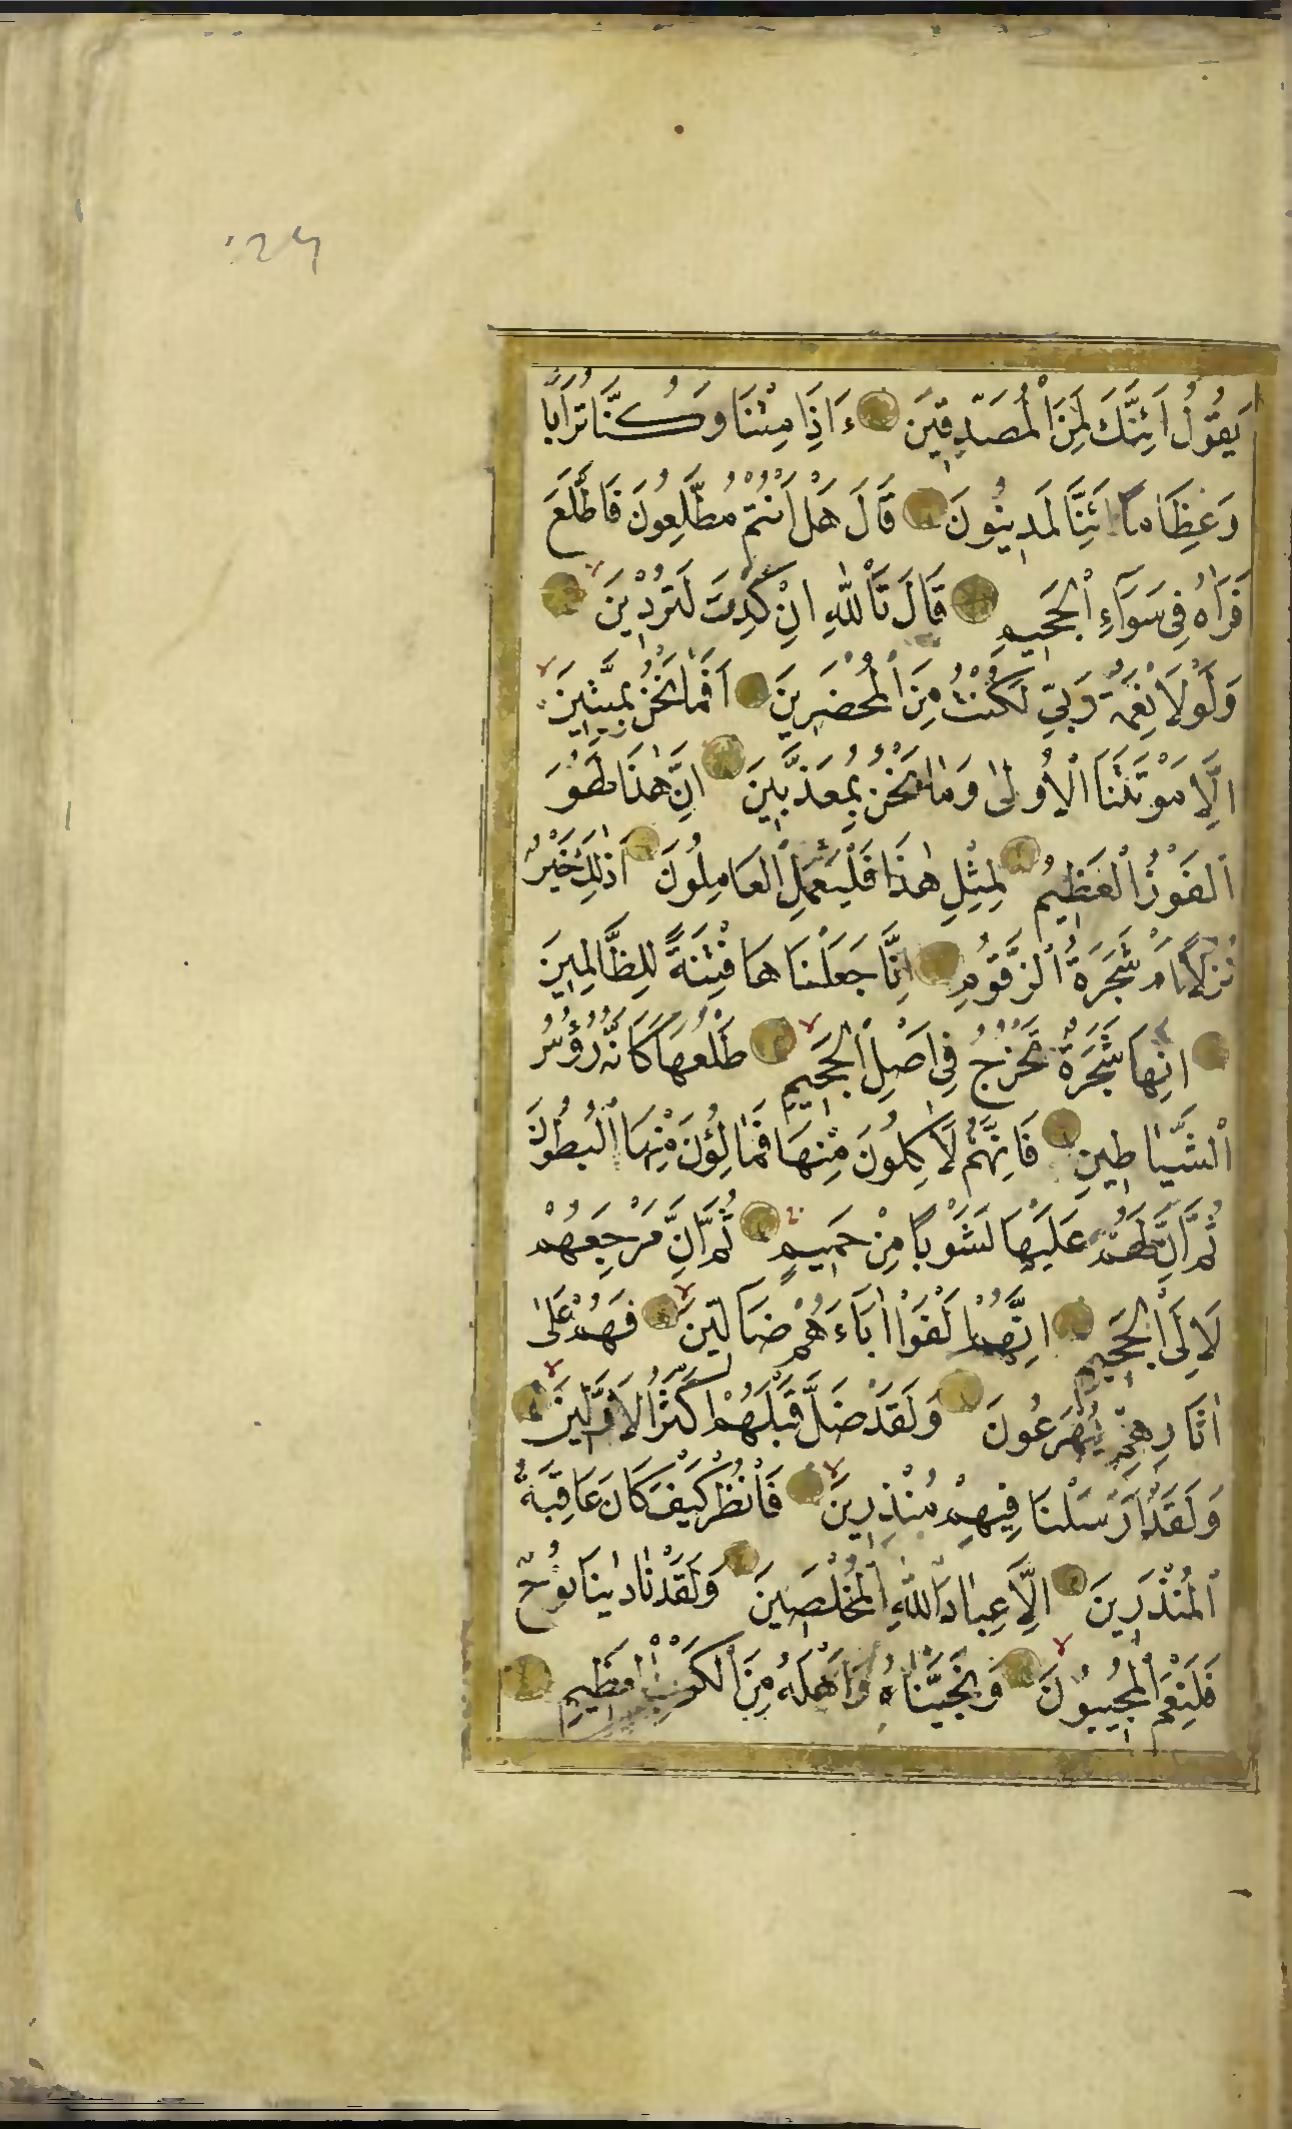 يَقُولُ اَئِنَّكَ لَمِنَ الْمُصَدِّقِينَ ءَاَذَا مِتْنَا وَكُنَّا تُرَابًا
وَعِظَامًا اَئِنَّا لَمَدِينُونَ قَالَ هَلْ اَنْتُمْ مُطَّلِعُونَ فَاطَّلَعَ
فَرَاٰهُ فِى سَوَآءِ الْجَحِيمِ قَالَ تَاللّٰهِ اِنْ كِدْتَ لَتُرْدِينَ
وَلَوْلَا نِعْمَةُ رَبِّى لَكُنْتُ مِنَ الْمُحْضَرِينَ اَفَمَا نَحْنُ بِمَيِّتِينَ
اِلَّا مَوْتَتَنَا الْاُولٰى وَمَا نَحْنُ بِمُعَذَّبِينَ اِنَّ هٰذَا لَهُوَ
الْفَوْزُ الْعَظِيمُ لِمِثْلِ هٰذَا فَلْيَعْمَلِ الْعَامِلُونَ اَذٰلِكَ خَيْرٌ
نُزُلًا اَمْ شَجَرَةُ الزَّقُّومِ اِنَّا جَعَلْنَاهَا فِتْنَةً لِلظَّالِمِينَ
اِنَّهَا شَجَرَةٌ تَخْرُجُ فِى اَصْلِ الْجَحِيمِ طَلْعُهَا كَاَنَّهُ رُؤُسُ
الشَّيَاطِينِ فَاِنَّهُمْ لَاٰكِلُونَ مِنْهَا فَمَالِؤُنَ مِنْهَا الْبُطُونَ
ثُمَّ اِنَّ لَهُمْ عَلَيْهَا لَشَوْبًا مِنْ حَمِيمٍ ثُمَّ اِنَّ مَرْجِعَهُمْ
لَاِلَى الْجَحِيمِ اِنَّهُمْ اَلْفَوْا اٰبَاءَهُمْ ضَالِّينَ فَهُمْ عَلٰى
اٰثَارِهِمْ يُهْرَعُونَ وَلَقَدْ ضَلَّ قَبْلَهُمْ اَكْثَرُ الْاَوَّلِينَ
وَلَقَدْ اَرْسَلْنَا فِيهِمْ مُنْذِرِينَ فَانْظُرْ كَيْفَ كَانَ عَاقِبَةُ
الْمُنْذَرِينَ اِلَّا عِبَادَ اللّٰهِ الْمُخْلَصِينَ وَلَقَدْ نَادٰينَا نُوحٌ
فَلَنِعْمَ الْمُجِيبُونَ وَنَجَّيْنَاهُ وَاَهْلَهُ مِنَ الْكَرْبِ الْعَظِيمِ